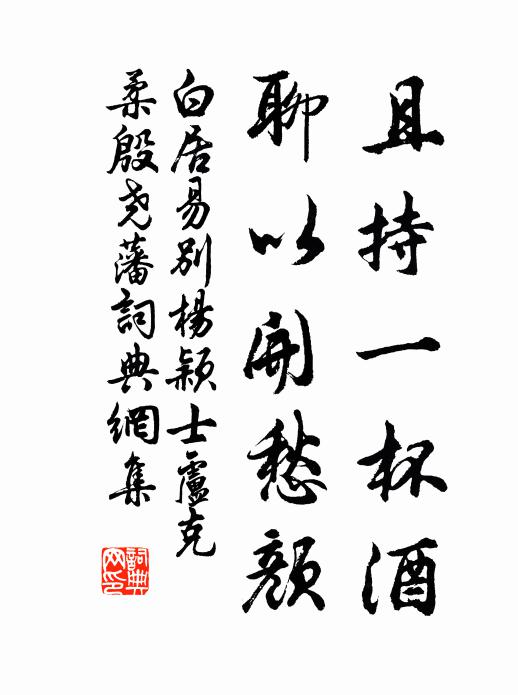 且持一杯酒
聊以開愁顏
白居易別楊潁士盧克
柔殷尧藩詞典網集
詞典
网印